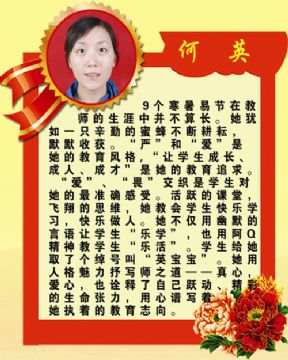 何 英
9个寒暑易节在教
师的生涯中并不算长。她犹
如一只辛勤的蜜蜂不断耕耘，
默默收获。“严”和“爱”是
她的教育风格，“让学生成长、
成人、成才”是她的教育追求。
“爱”、“畏”交织是学生对
她的最准确感受。活跃的课堂，
飞翔的思维，她教会学生快乐学
习，快乐做人。她不仅用幽默的
言语让学生“乐学”，也用阿Q
精神教学生“乐活”。学生给她
取了个绰号叫“英宝宝”。她用
人格魅力抒写师之道——真心，
爱心，也诠释了自己跃动、精彩
的生命张力，用心谱写着
她执着的教育志向。